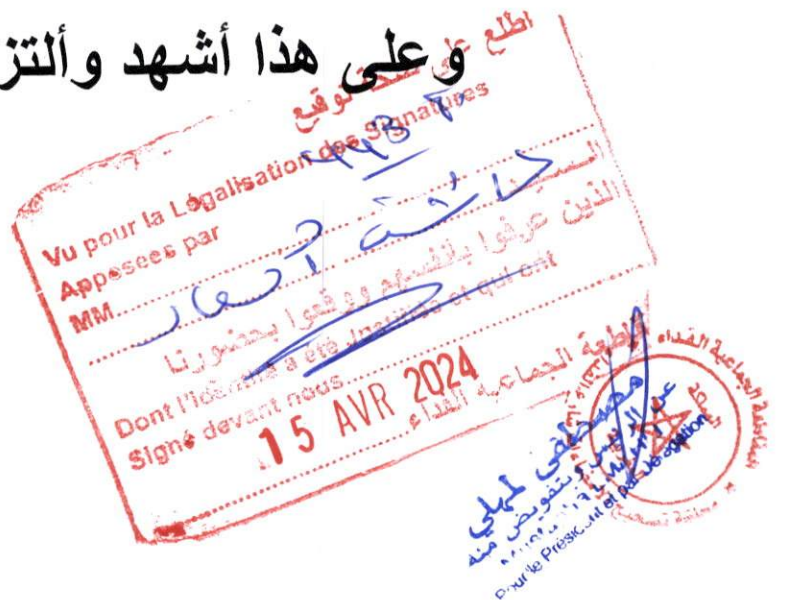 وعلى هذا أشهد وألتز
اطلع على صحة توقيع
Vu pour la Légalisation des Signatures
Apposées par
السيد
MM
عائشة
الذين عرفوا بأنفسهم ووقعوا بحضورنا
Dont l'identité a été Justifiée et qui ont
Signé devant nous
15 AVR 2024
مقاطعة الجماعية الفداء
مصطفى لمهلي
عن الرئيس وبتفويض منه
Pour le Président et par délégation